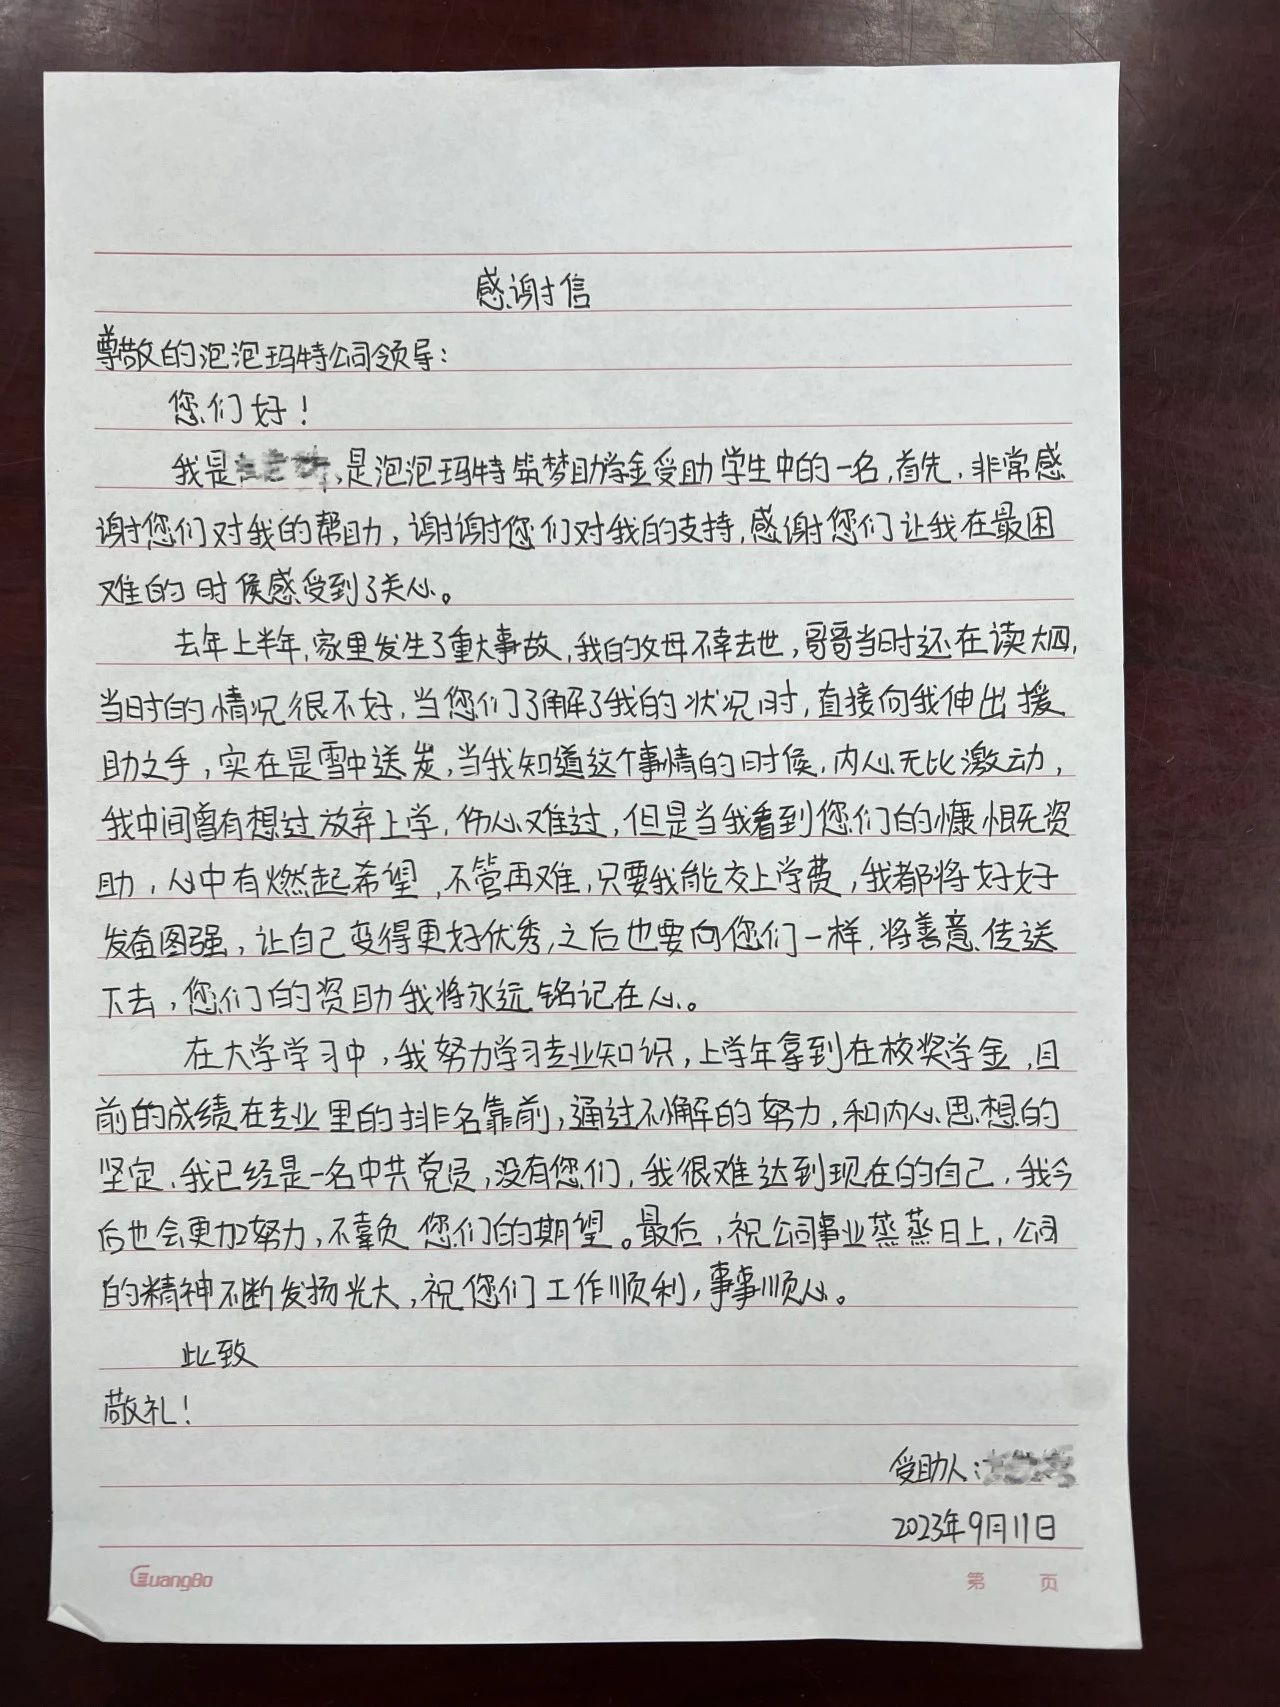 感谢信
尊敬的泡泡玛特公司领导：
您们好！
我是 ，是泡泡玛特筑梦助学金受助学生中的一名，首先，非常感
谢您们对我的帮助，谢谢您们对我的支持，感谢您们让我在最困
难的时候感受到了关心。
去年上半年，家里发生了重大事故，我的父母不幸去世，哥哥当时还在读大四，
当时的情况很不好，当您们了解了我的状况时，直接向我伸出援
助之手，实在是雪中送炭，当我知道这个事情的时候，内心无比激动，
我中间曾有想过放弃上学，伤心难过，但是当我看到您们的慷慨资
助，心中有燃起希望，不管再难，只要我能交上学费，我都将好好
发奋图强，让自己变得更好优秀，之后也要向您们一样，将善意传送
下去，您们的资助我将永远铭记在心。
在大学学习中，我努力学习专业知识，上学年拿到在校奖学金，目
前的成绩在专业里的排名靠前，通过不懈的努力，和内心思想的
坚定，我已经是一名中共党员，没有您们，我很难达到现在的自己，我今
后也会更加努力，不辜负您们的期望。最后，祝公司事业蒸蒸日上，公司
的精神不断发扬光大，祝您们工作顺利，事事顺心。
此致
敬礼！
受助人：
2023年9月11日
GuangBo 第 页